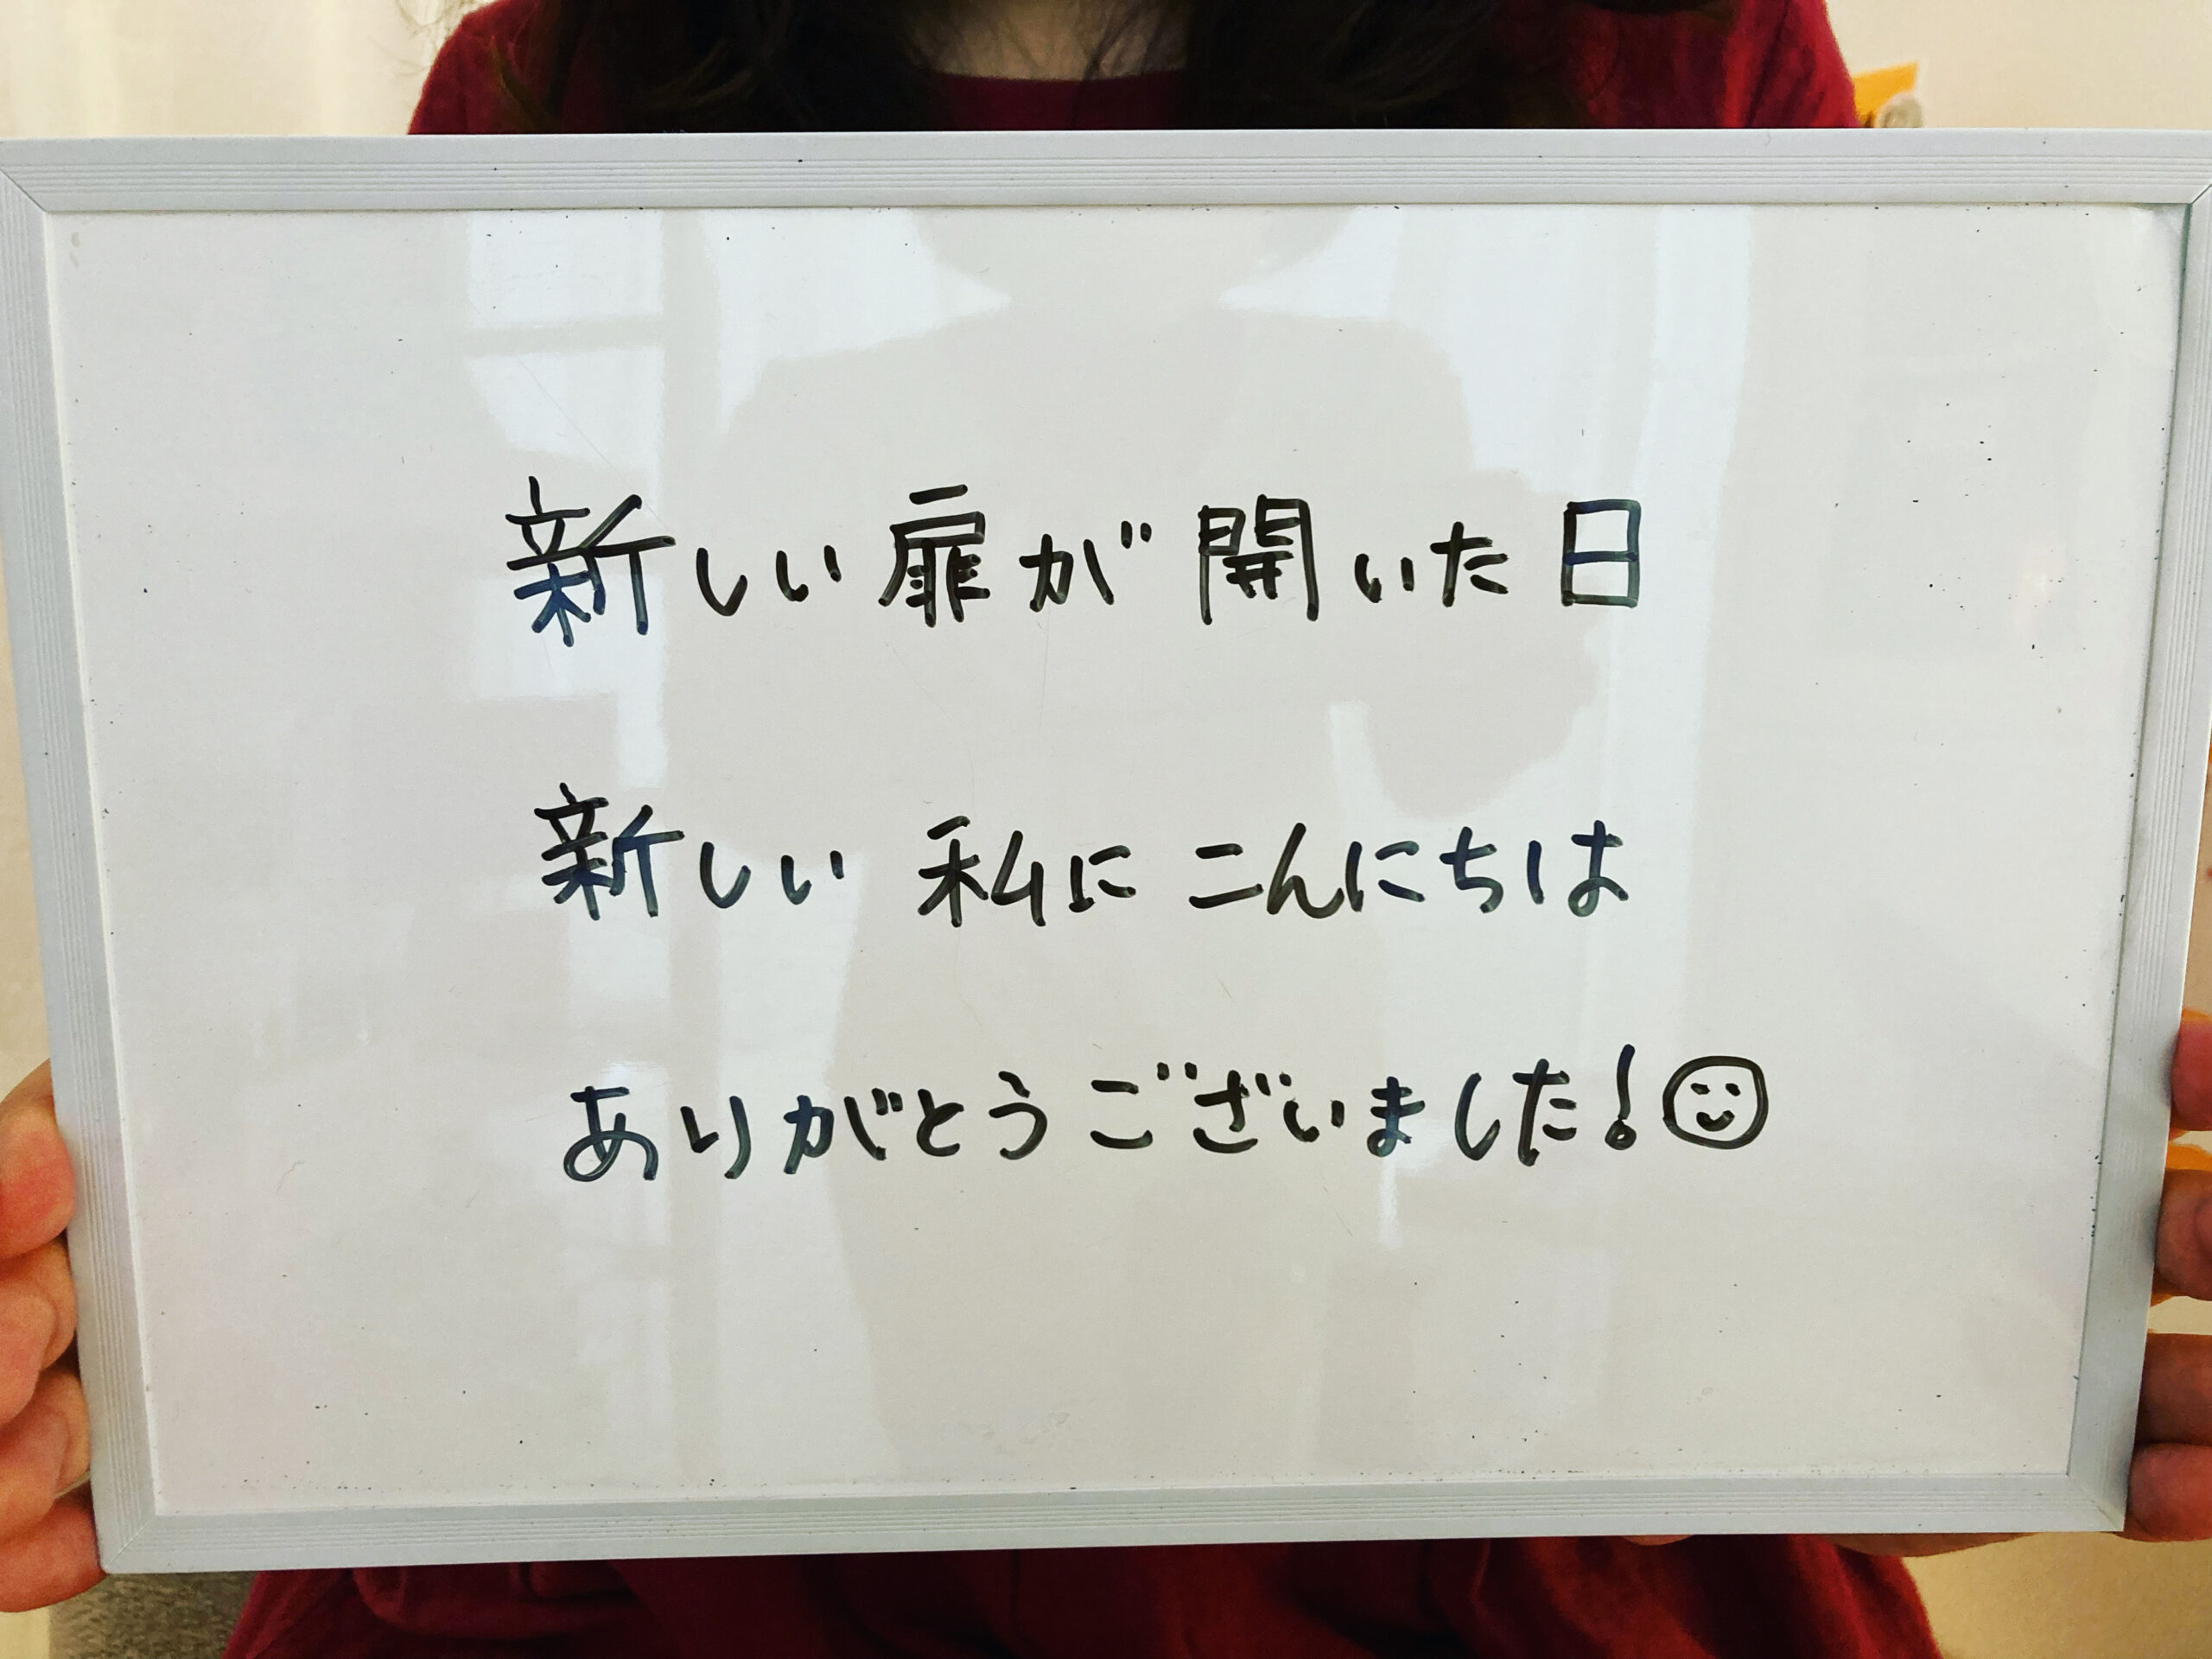 新しい扉が開いた日
新しい私にこんにちは
ありがとうございました!☺